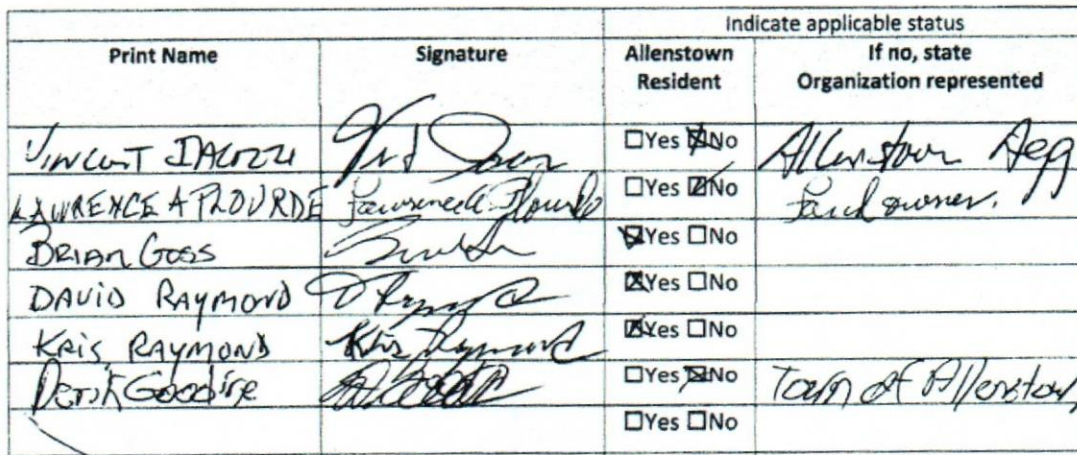 Indicate applicable status
Print Name Signature Allenstown Resident If no, state Organization represented
VINCENT IACOZZI ☐Yes ☒No Allenstown Agg
LAWRENCE A PLOURDE Lawrence A. Plourde ☐Yes ☒No Landowner.
BRIAN GOSS ☒Yes ☐No
DAVID RAYMOND ☒Yes ☐No
KRIS RAYMOND Kris Raymond ☒Yes ☐No
Derik Goodine ☐Yes ☒No Town of Allenstown
☐Yes ☐No